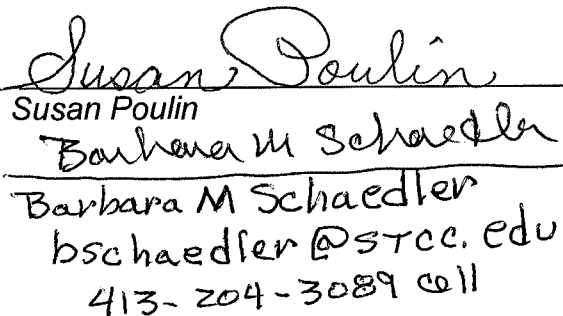 Susan Poulin
Susan Poulin
Barbara M Schaedler
Barbara M Schaedler
bschaedler@stcc.edu
413-204-3089 cell